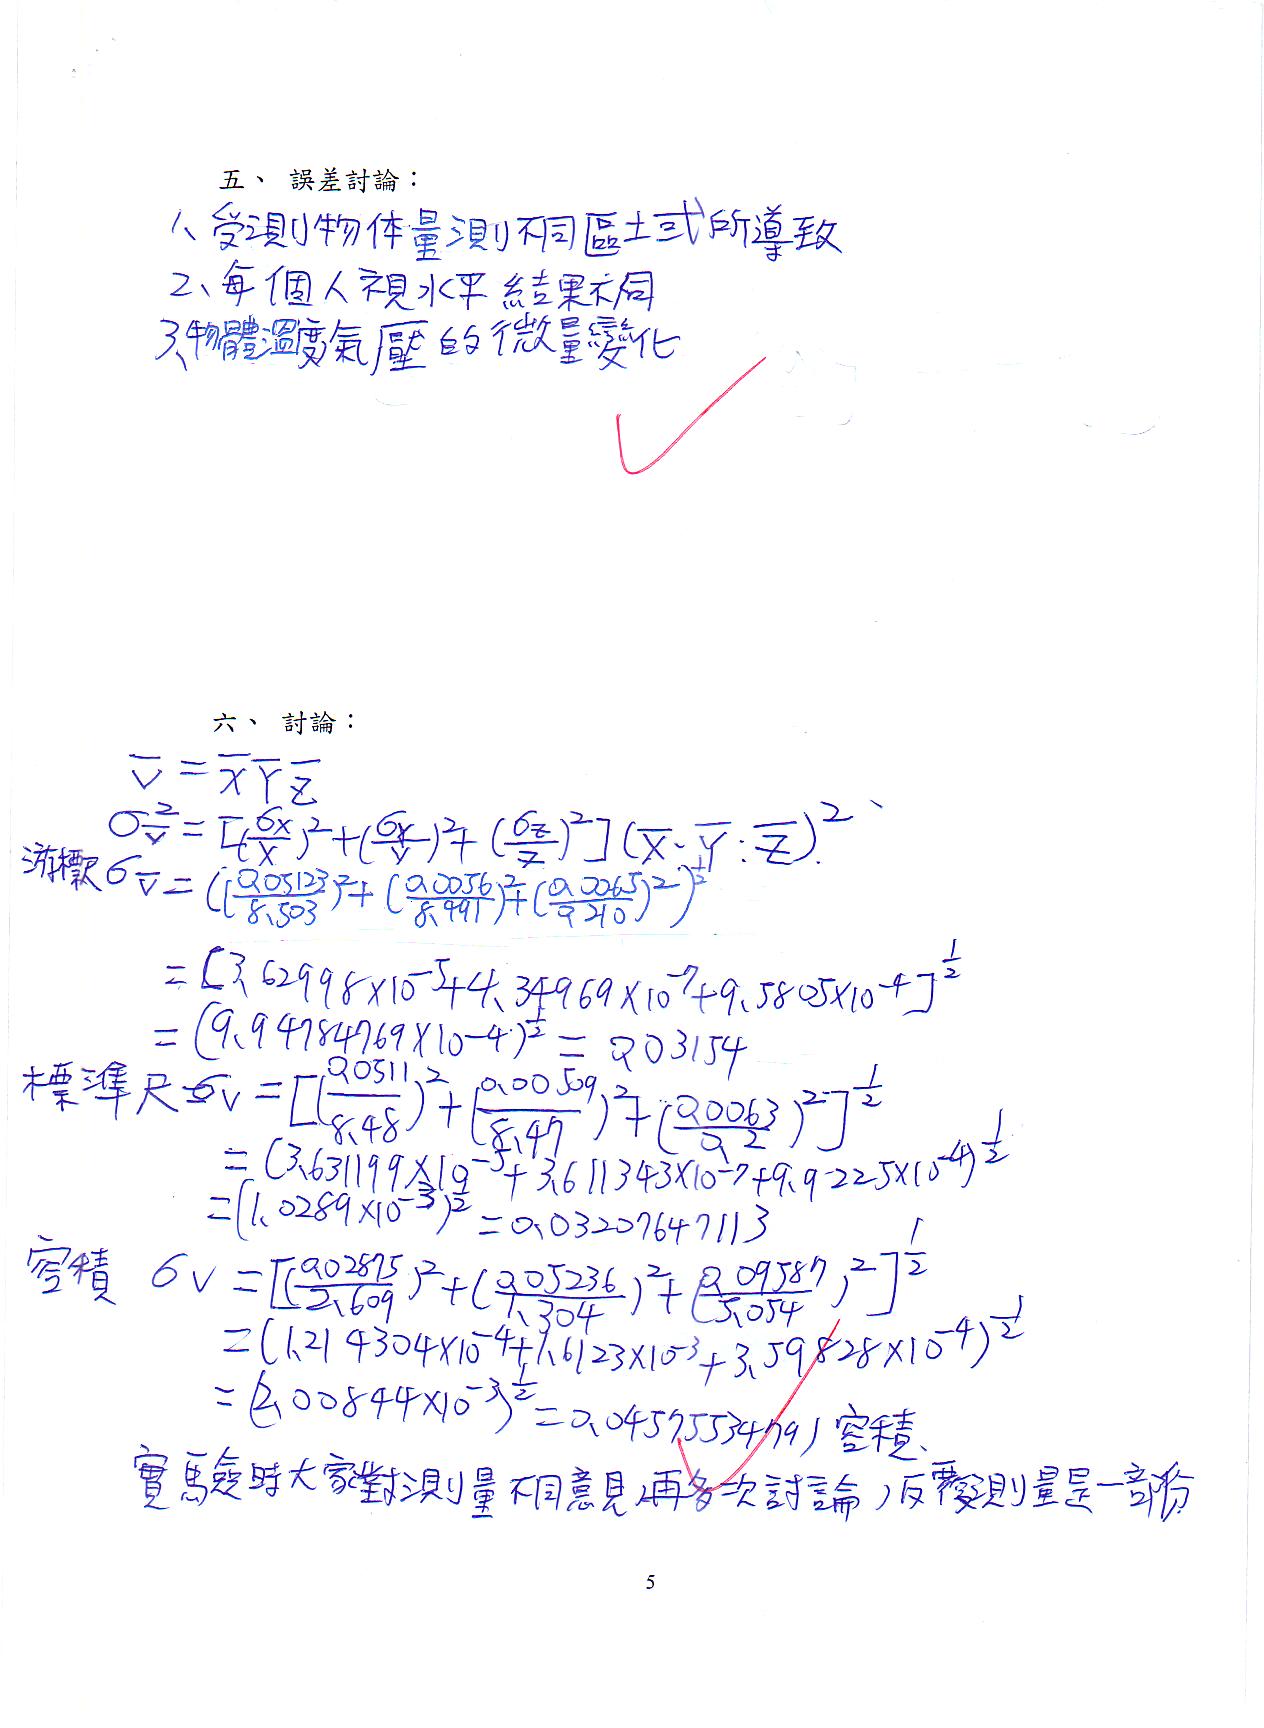 五、 誤差討論：
1、受測物体量測不同區土或所導致
2、每個人視水平結果不同
3、物體溫度氣壓的微量變化
六、 討論：
V̄ = X̄ Ȳ Z̄
σV̄² = [(σX/X)² + (σY/Y)² + (σZ/Z)²] (X̄·Ȳ·Z̄)²
游標尺 σV̄ = ((0.05123/8.503)² + (0.0056/8.491)² + (0.0065/0.210)²)^½
= [3.62998×10⁻⁵ + 4.34969×10⁻⁷ + 9.5805×10⁻⁴]^½
= (9.94784769×10⁻⁴)^½ = 0.03154
標準尺 σV = [(0.0511/8.48)² + (0.00509/8.47)² + (0.0063/0.2)²]^½
= (3.631199×10⁻⁵ + 3.611343×10⁻⁷ + 9.9225×10⁻⁴)^½
= (1.0289×10⁻³)^½ = 0.03207647113
容積 σV = [(0.02875/2.609)² + (0.05236/1.304)² + (0.09587/5.054)²]^½
= (1.214304×10⁻⁴ + 1.6123×10⁻³ + 3.59828×10⁻⁴)^½
= (2.00844×10⁻³)^½ = 0.04575534791 容積、
實驗時大家對測量不同意見,再多次討論,反覆測量是一部份
5